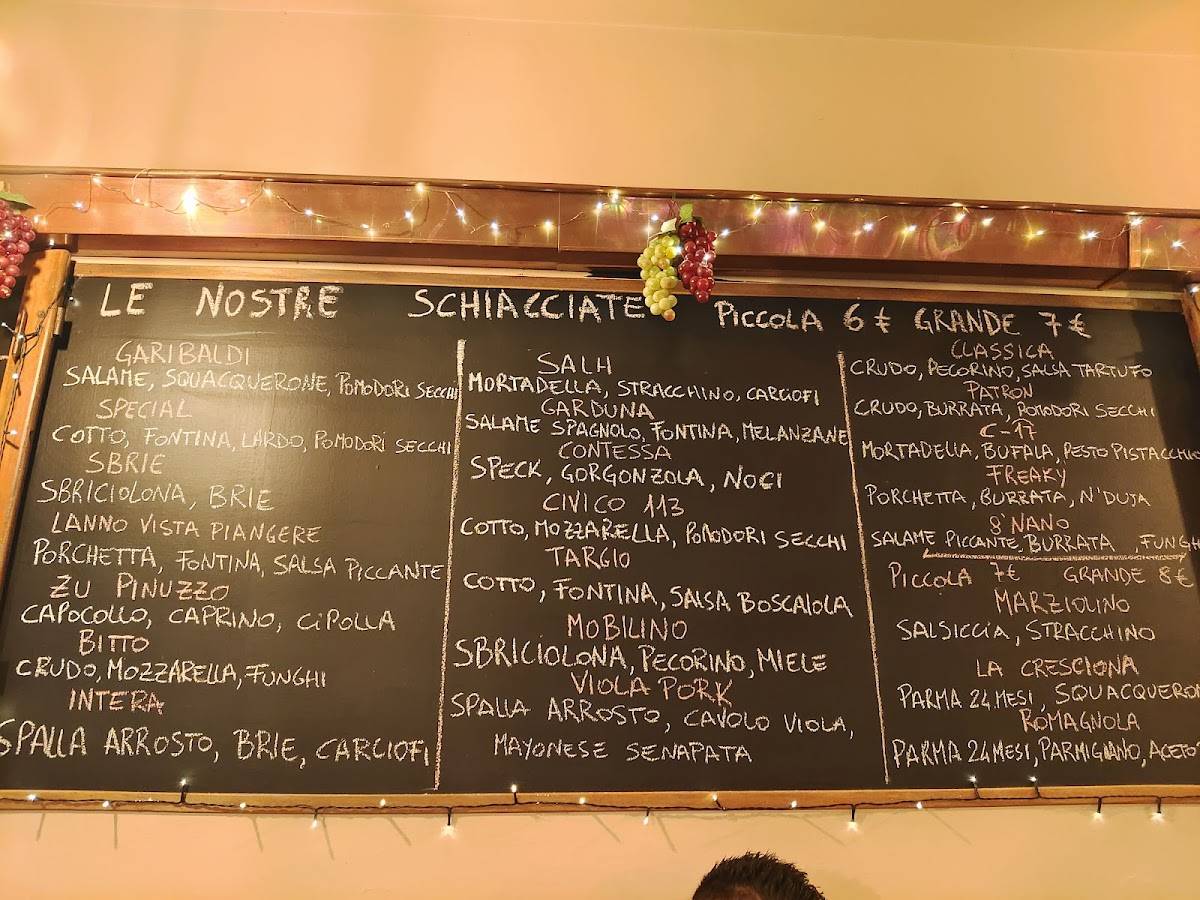 LE NOSTRE SCHIACCIATE PICCOLA 6 € GRANDE 7 €
GARIBALDI
SALAME, SQUACQUERONE, POMODORI SECCHI
SPECIAL
COTTO, FONTINA, LARDO, POMODORI SECCHI
SBRIE
SBRICIOLONA, BRIE
LANNO VISTA PIANGERE
PORCHETTA, FONTINA, SALSA PICCANTE
ZU PINUZZO
CAPOCOLLO, CAPRINO, CIPOLLA
BITTO
CRUDO, MOZZARELLA, FUNGHI
INTERA
SPALLA ARROSTO, BRIE, CARCIOFI
SALH
MORTADELLA, STRACCHINO, CARCIOFI
GARDUNA
SALAME SPAGNOLO, FONTINA, MELANZANE
CONTESSA
SPECK, GORGONZOLA, NOCI
CIVICO 113
COTTO, MOZZARELLA, POMODORI SECCHI
TARGIO
COTTO, FONTINA, SALSA BOSCAIOLA
MOBILINO
SBRICIOLONA, PECORINO, MIELE
VIOLA PORK
SPALLA ARROSTO, CAVOLO VIOLA,
MAYONESE SENAPATA
CLASSICA
CRUDO, PECORINO, SALSA TARTUFO
PATRON
CRUDO, BURRATA, POMODORI SECCHI
C-17
MORTADELLA, BUFALA, PESTO PISTACCHIO
FREAKY
PORCHETTA, BURRATA, N'DUJA
8'NANO
SALAME PICCANTE, BURRATA, FUNGH
PICCOLA 7€ GRANDE 8€
MARZIOLINO
SALSICCIA, STRACCHINO
LA CRESCIONA
PARMA 24 MESI, SQUACQUERO
ROMAGNOLA
PARMA 24 MESI, PARMIGIANO, ACETO